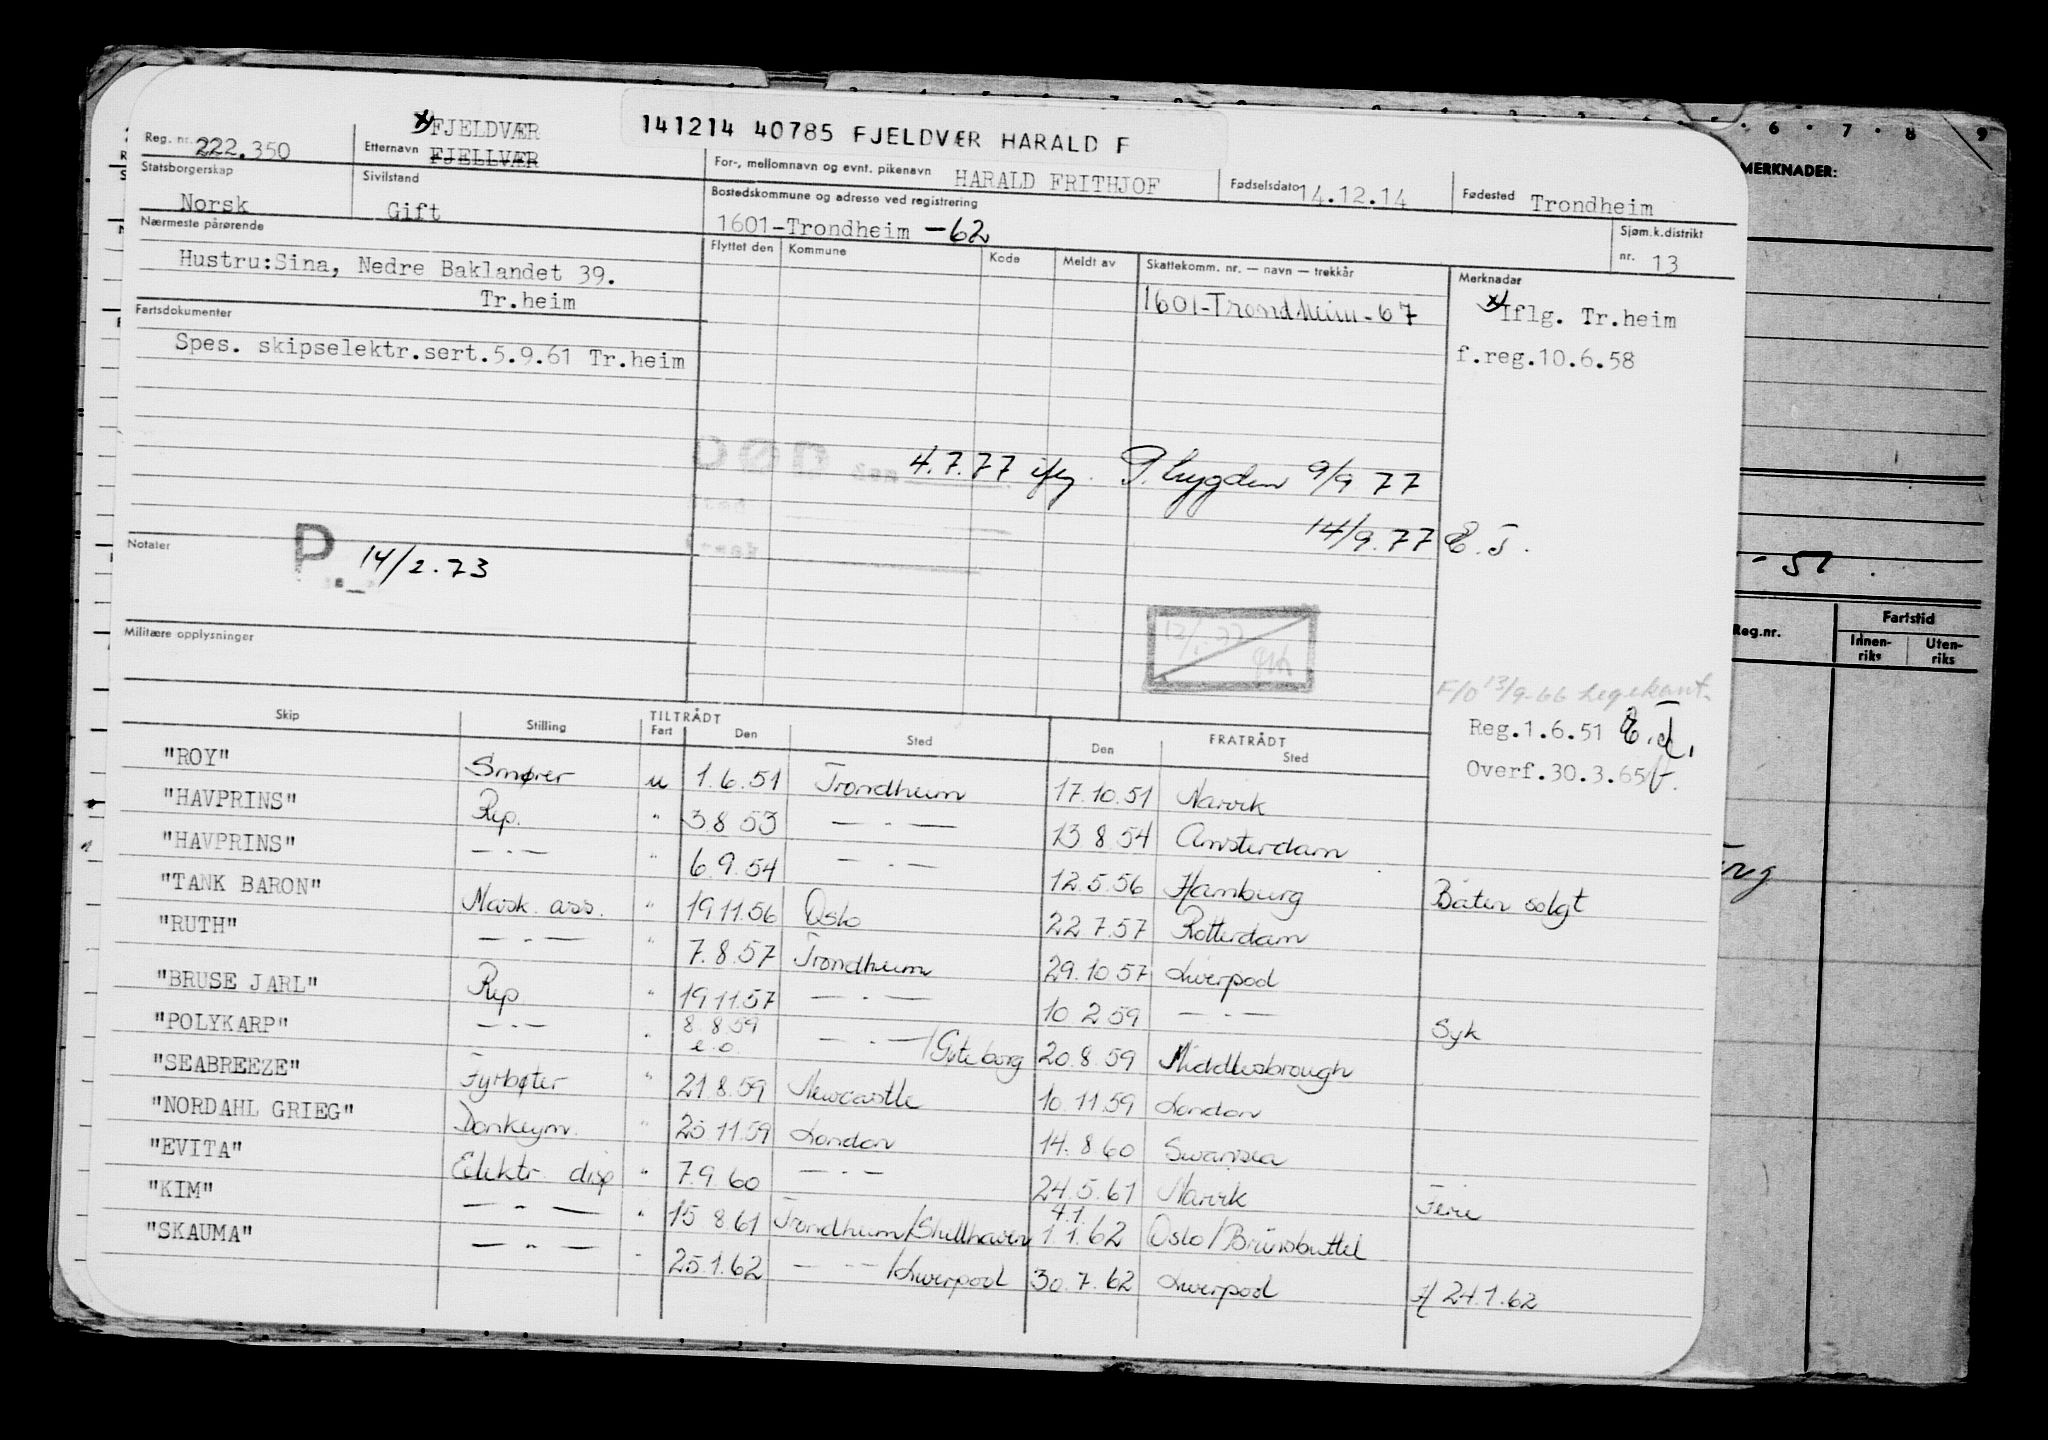 141214 40785 FJELDVÆR HARALD F
Reg. nr. 222.350
Etternavn x) FJELDVÆR
FJELLVÆR
For-, mellomnavn og evnt. pikenavn HARALD FRITHJOF
Fødselsdato 14.12.14
Fødested Trondheim
Statsborgerskap Norsk
Sivilstand Gift
Bostedskommune og adresse ved registrering
1601-Trondheim -62
Sjøm.k.distrikt nr. 13
Nærmeste pårørende
Hustru:Sina, Nedre Baklandet 39.
Tr.heim
Flyttet den Kommune Kode Meldt av Skattekomm. nr. — navn — trekkår Merknader
1601-Trondheim-67
x) Iflg. Tr.heim
f.reg.10.6.58
Fartsdokumenter
Spes. skipselektr.sert.5.9.61 Tr.heim
4.7.77 iflg. P. trygden 9/9 77
14/9.77 E.T.
Notater
P 14/2.73
Militære opplysninger
F/O 13/9-66 Legekont.
Reg.1.6.51 E.T.
Overf.30.3.65
Skip Stilling TILTRÅDT Fart Den Sted FRATRÅDT Den Sted
"ROY" Smører u 1.6.51 Trondheim 17.10.51 Narvik
"HAVPRINS" Rep. " 3 8 53 — . — 13 8 54 Amsterdam
"HAVPRINS" — . — " 6.9.54 — . — 12.5.56 Hamburg Båten solgt
"TANK BARON" Mask. ass. " 19 11.56 Oslo 22 7.57 Rotterdam
"RUTH" — . — " 7.8.57 Trondheim 29.10 57 Liverpool
"BRUSE JARL" Rep " 19 11.57 — . — 10 2 59 — . — Syk
"POLYKARP" — . — " 8 8 59 e.o. — . — /Gøteborg 20.8.59 Middlesbrough
"SEABREEZE" Fyrbøter " 21 8.59 Newcastle 10.11.59 London
"NORDAHL GRIEG" Donkeym. " 25 11.59 London 14.8 60 Swansea
"EVITA" Elektr. disp " 7.9.60 — . — 24.5.61 Narvik Ferie
"KIM" — . — " 15 8.61 Trondheim/Shellhaven 4.1. 1.1.62 Oslo/Brünsbuttel
"SKAUMA" — " — " 25.1.62 — . — /Liverpool 30.7.62 Liverpool F/ 24.1.62
6 . 7 . 8 . 9
MERKNADER:
- 51 .
Reg.nr. Fartstid
Innen-riks Uten-riks